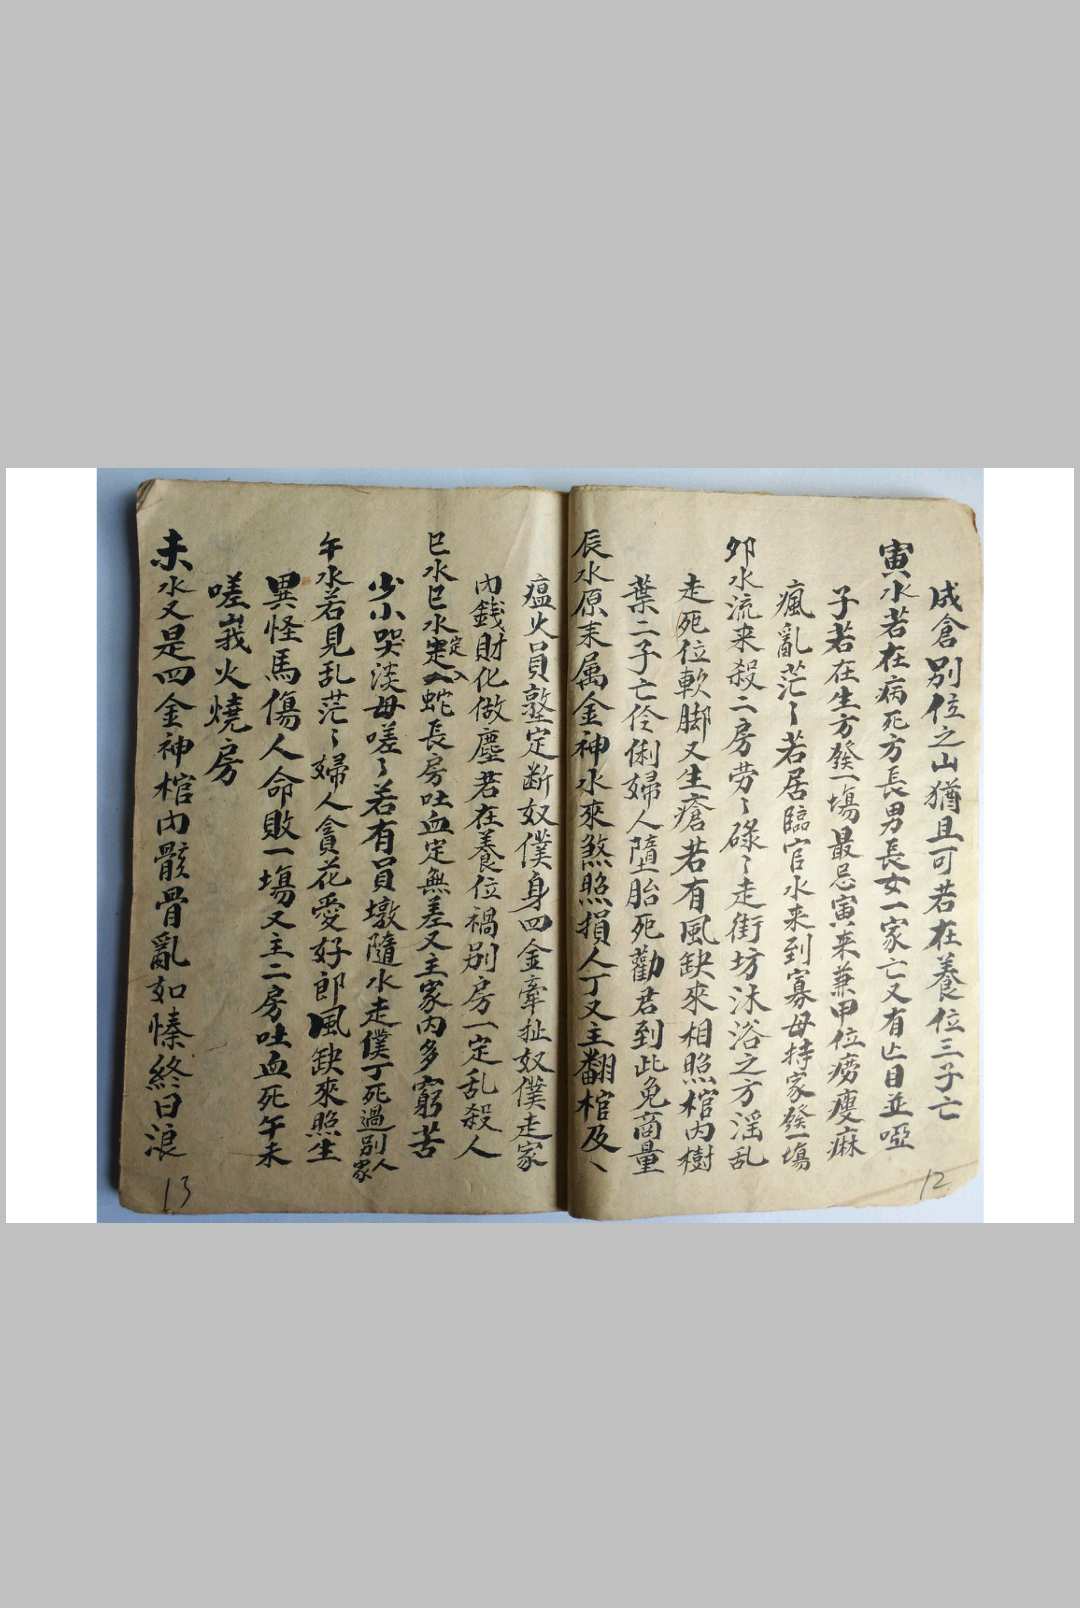 成倉別位之山猶且可若在養位三子亡
寅水若在病死方長男長女一家亡又有亡目並啞
子若在生方發一塲最忌寅来兼甲位癆瘦麻
瘋亂茫〻若居臨官水来到寡母持家發一塲
夘水流来殺二房劳〻碌〻走街坊沐浴之方淫乱
走死位軟脚又生瘡若有風缺來相照棺内樹
葉二子亡伶俐婦人墮胎死勸君到此免商量
辰水原来属金神水來煞照損人丁又主翻棺及、
瘟火員塾定断奴僕身四金牽扯奴僕走家
内銭財化做塵若在養位禍别房一定乱殺人
巳水巳水定入蛇長房吐血定無差又主家内多窮苦
少小哭淡母嗟〻若有員墩隨水走僕丁死過别人家
午水若見乱茫〻婦人貪花愛好郎風缺來照生
異怪馬傷人命敗一塲又主二房吐血死午未
嗟峩火燒房
未水又是四金神棺内骸骨亂如愫終日浪
12
13